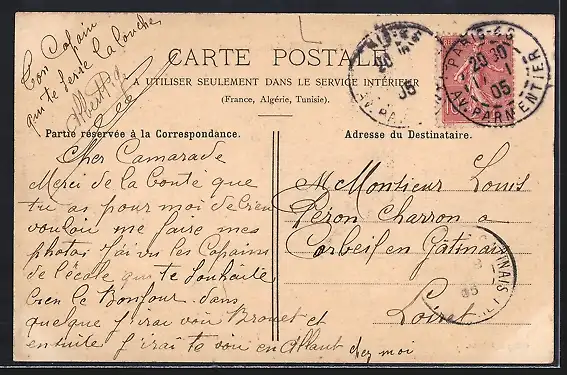 Ton Copain
qui te serre la louche
Albert
CARTE POSTALE
A UTILISER SEULEMENT DANS LE SERVICE INTÉRIEUR
(France, Algérie, Tunisie).
PARIS-45
20 30
05
AV. PARMENTIER
Partie réservée à la Correspondance.
Adresse du Destinataire.
Cher Camarade
Merci de la bonté que
tu as pour moi de bien
vouloir me faire mes
photos J'ai vu les Copains
de l'école qui te souhaite
bien le Bonjour. dans
quelque J'irai voir Brouet et
ensuite J'irai te voir en Allant chez moi
M Monsieur Louis
Péron Charron a
Corbeil en Gâtinais
Loiret